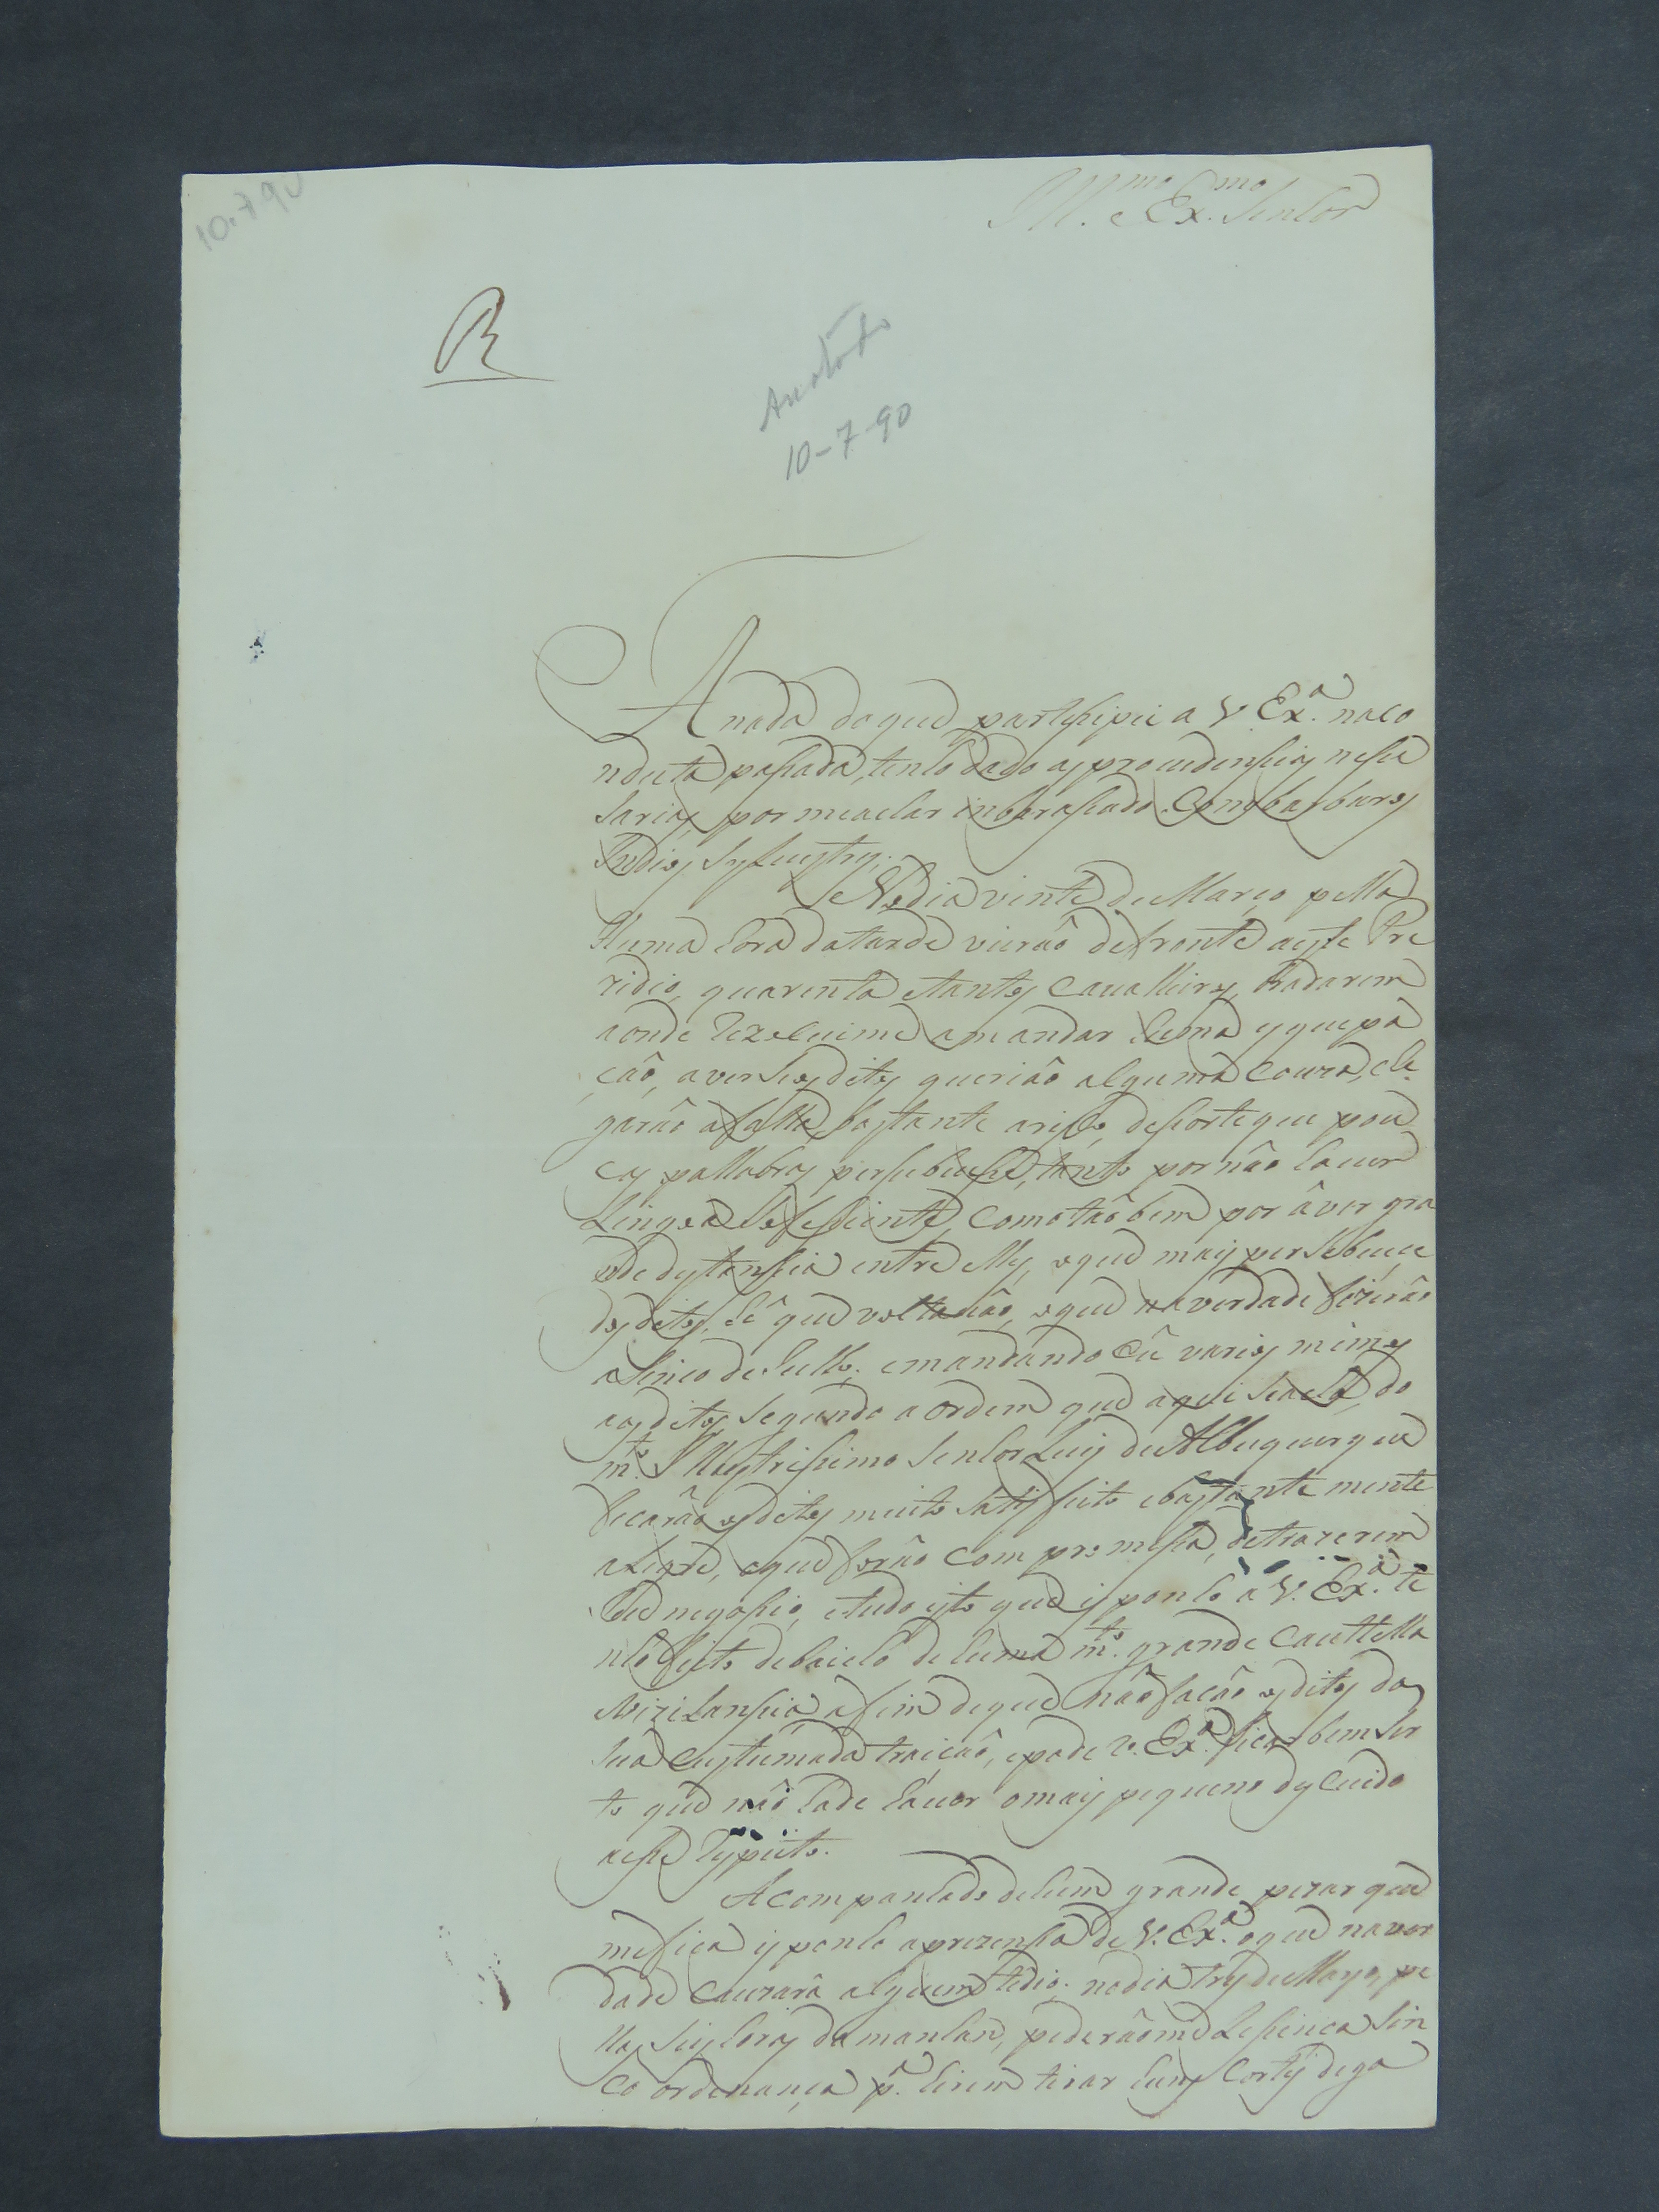 10.7 90
Ill.mo Ex.mo Senhor
R
Anotado
10-7-90
A nada do que partisipei a V. Ex.ª na co
nducta pasada, tenho dado as providensias nesa
sarias por me achar inbarasado Com os barbaros
Indios Sylvestres.
No dia vinte de Março pella
Huma hora da tarde vierão defronte a este Pre
zidio, quarenta e tantos Cavalleiros,
a onde Rezolvime a mandar huma
ção, a ver se os ditos querião alguma Couza, che
garão a falla bastante arisco, de sorte que pou
cas pallabras persebeuse, tanto por não haver
Lingoa Sefisiente, como tãobem por aver gra
nde dystansia entre elles, o que mais persebeuse
dos ditos, hé que voltavão, o que na verdade fizerão
a sinco de Julho; e mandando eú varios mimos
aos ditos segundo a ordem que aqui se acha, do
m.to Illustrisimo Senhor Luis de Albuquerque
ficarão os ditos muito satisfeito e bastante mente
alegre, e que forão com promesa, de trazerem
negosio, e tudo isto que isponho a V. Ex.ª te
nho feito debaicho de huma m.to grande Cauttella
e Vizilansia a fim de que não fação os ditos da
sua custumada traição, e pode V. Ex.ª ficar bem ser
to que não hade haver o mais pequeno dyscuido
a este Respeito.
Acompanhado de hum grande pezar que
me fica isponho a prezensa de V. Ex.ª o que na ver
dade Cauzará algum tedio; no dia tres de Mayo, pe
llas seis horas da manhan, pederãome Lesença sin
co ordenança p.ª hirem tirar huns Cortes de ga